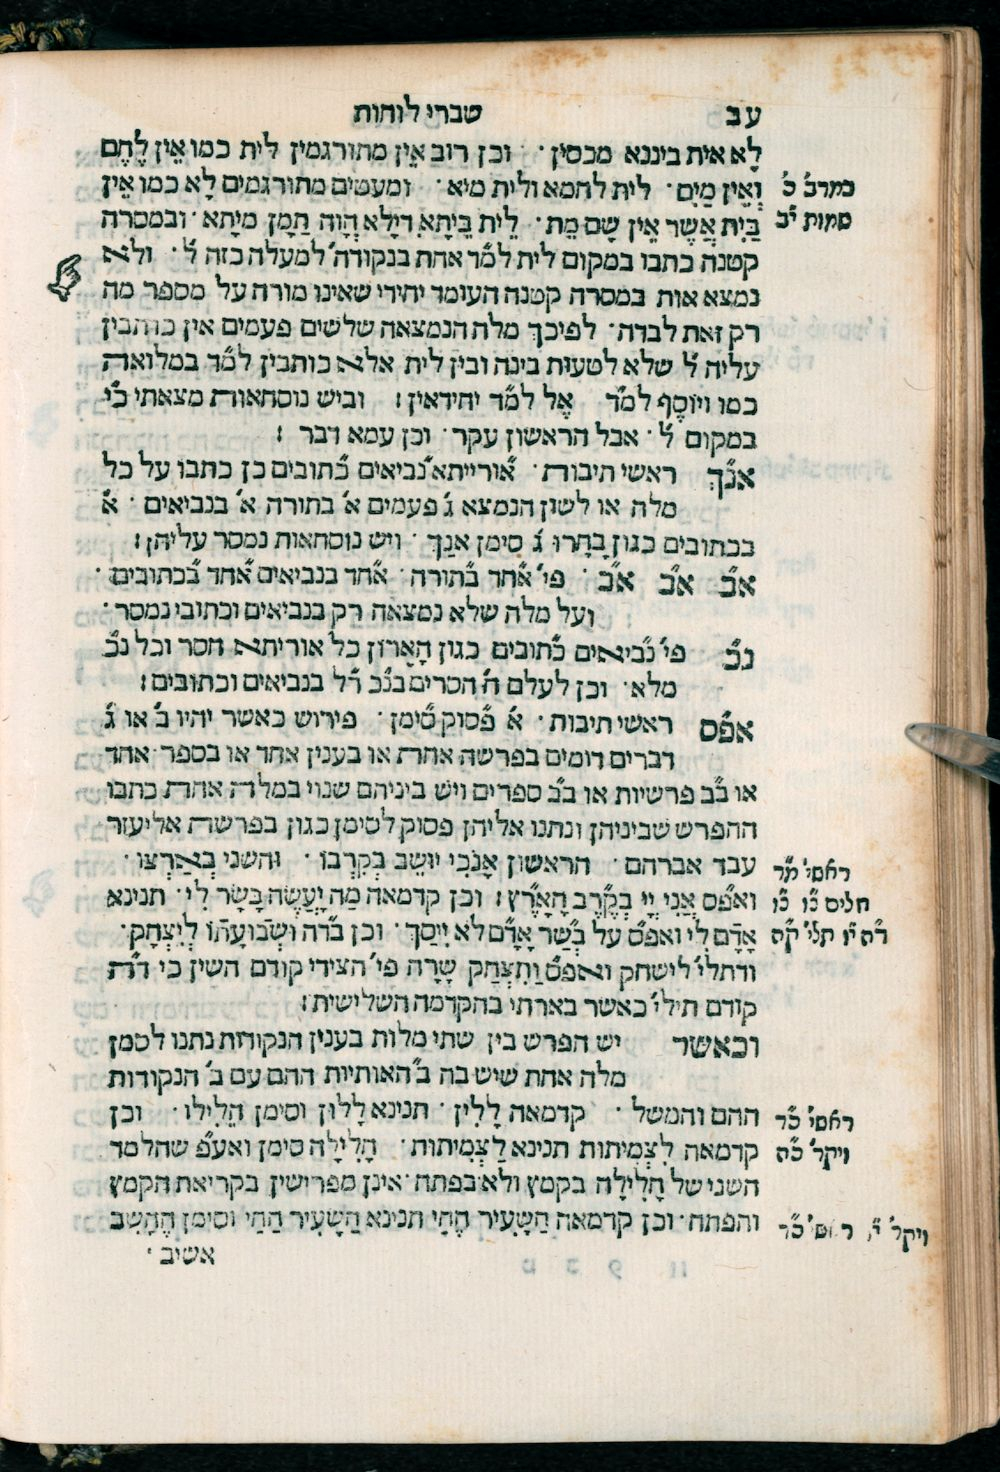 עב שברי לוחות
לָא אית ביננא מכסין · וכן רוב אֵין מתורגמין לית כמו אֵין לֶחֶם
וְאֵין מַיִם · לית לחמא ולית מיא · ומעטים מתורגמים לָא כמו אֵין
במדב׳ כ׳
בַּיִת אֲשֶׁר אֵין שָׁם מֵת · לֵית בֵּיתָא דִילָא הֲוָה תַמָן מִיתָא · ובמסרה
שמות י֞ב
קטנה כתבו במקום לית למ֞ד אחת בנקודה למעלה כזה ל֗ · ולא
נמצא אות במסרה קטנה העומד יחידי שאינו מורה על מספר מה
רק זאת לבדה · לפיכך מלה הנמצאה שלשים פעמים אין כותבין
עליה ל֗ שלא לטעות בינה ובין לית אלא כותבין למ֞ד במלואה
כמו וְיוֹסֵף למ֞ד אֶל למ֞ד יחידאין : וביש נוסחאות מצאתי כ֞י
במקום ל֗ · אבל הראשון עקר · וכן עמא דבר :
אנ֞ך ראשי תיבות · א֞ורייתא נ֞ביאים כ֞תובים כן כתבו על כל
מלה או לשון הנמצא ג֗ פעמים א֗ בתורה א֗ בנביאים · א֗
בכתובים כגון בָחֲרוּ ג֗ סימן אנ֞ך · ויש נוסחאות נמסר עליהן :
א֞ב א֞ב א֞ב · פי׳ א֞חד ב֞תורה · א֞חד ב֞נביאים א֞חד ב֞כתובים ·
ועל מלה שלא נמצאה רק בנביאים וכתובי נמסר ·
נ֞כ פי׳ נ֞ביאים כ֞תובים כגון הָאֲרוֹן כל אוריתא חסר וכל נ֞כ
מלא · וכן לעלם ח֗ חסרים בנ֞כ ר֞ל בנביאים וכתובים :
אפ֞ס ראשי תיבות · א֗ פ֞סוק ס֞ימן · פירוש כאשר יהיו ב֗ או ג֗
דברים דומים בפרשה אחת או בענין אחד או בספר אחד
או ב֞ב פרשיות או ב֞ב ספרים ויש ביניהם שנוי במלה אחת כתבו
ההפרש שביניהן ונתנו אליהן פסוק לסימן כגון בפרשת אליעזר
עבד אברהם · הראשון אָנֹכִי יוֹשֵׁב בְּקִרְבּוֹ · והשני בְּאַרְצוֹ ·
ראשי׳ כ֞ד
ואפ֞ס אֲנִי יְיָ בְּקֶרֶב הָאָרֶץ : וכן קדמאה מַה יַעֲשֶׂה בָשָׂר לִי · תנינא
תליס נ֞ו נ֞ו
אָדָם לִי ואפ֞ס עַל בְּשַׂר אָדָם לֹא יִיסָךְ · וכן בד֞ה וּשְׁבוּעָתוֹ לְיִצְחָק ·
ד֞ה י֞ו תלי׳ ק֞ה
ודתלי׳ לישחק ואפ֞ס וַתִּצְחַק שָׂרָה פי׳ הצידי קודם השין כי ד֞ה
קודם תילי׳ כאשר בארתי בהקדמה השלישית :
וכאשר יש הפרש בין שתי מלות בענין הנקודות נתנו לסמן
מלה אחת שיש בה ב֗ האותיות ההם עם ב֗ הנקודות
ההם והמשל · קדמאה לָלִין · תנינא לָלוּן וסימן הֵלִילוּ · וכן
ראשי׳ כ֞ד
קדמאה לִצְמִיתוּת תנינא לַצְמִיתוּת · הָלִילָה סימן ואע֞פ שהלמד
ויקר׳ כ֞ה
השני של חָלִילָה בקמץ ולא בפתח אינן מפרישין בקריאת הקמץ
והפתח · וכן קדמאה הַשָּׂעִיר הֶחָי תנינא הַשָּׂעִיר הַחַי וסימן הֶהָשֵׁב
ויקר׳ י֞ו
אשיב ·